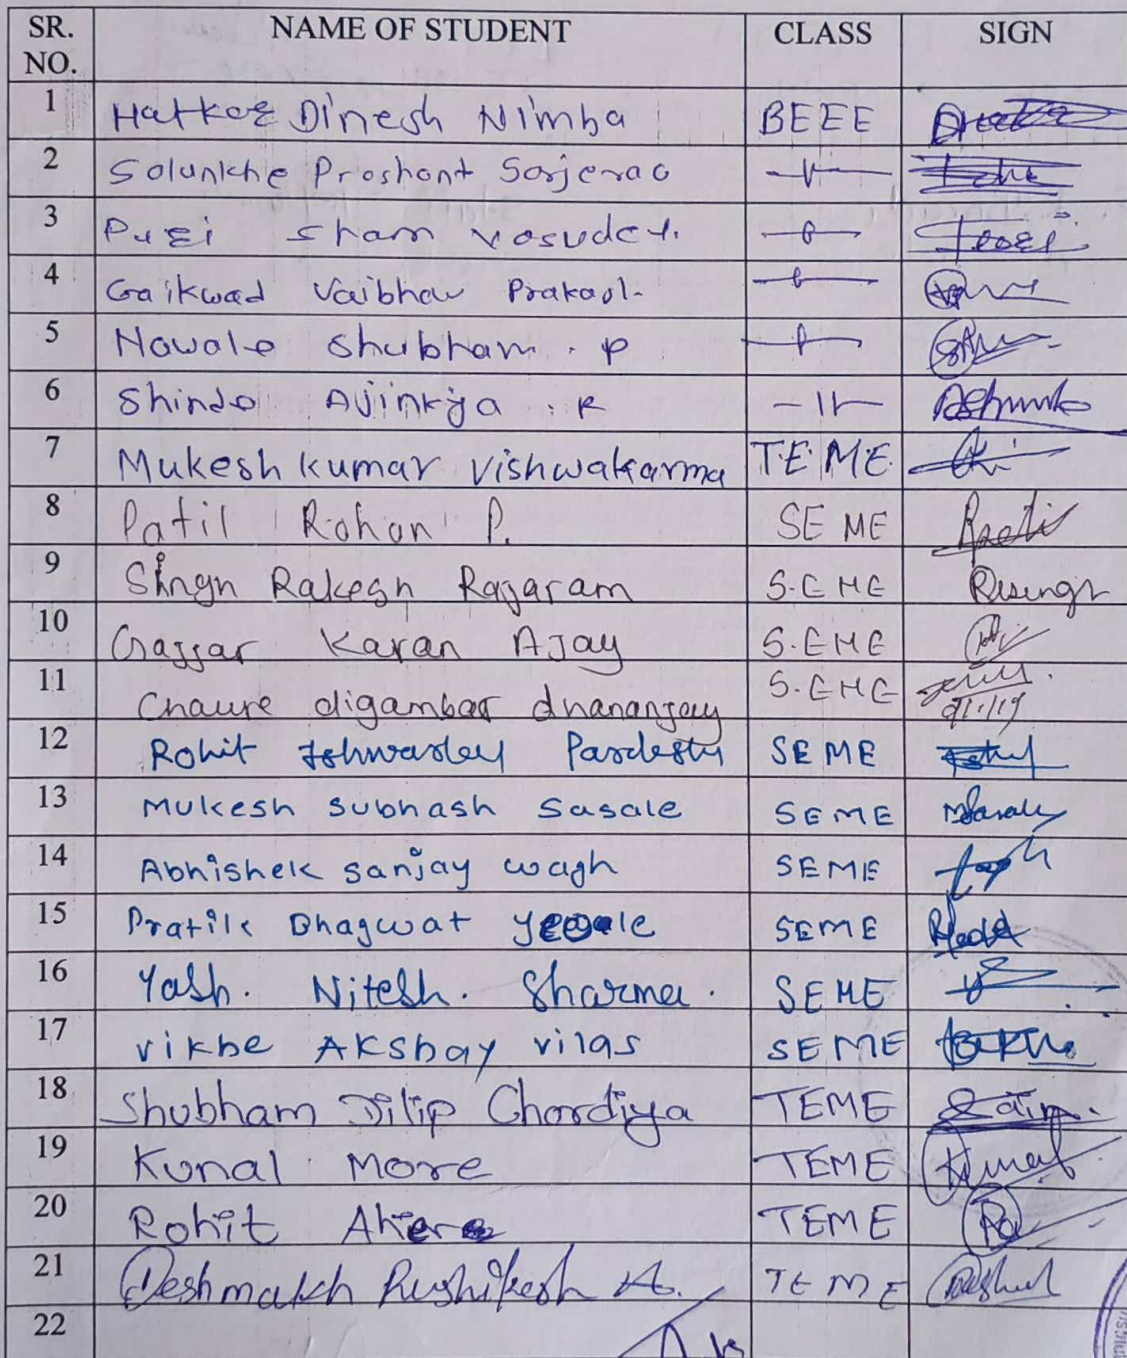 SR. NO. NAME OF STUDENT CLASS SIGN
1 Hatkar Dinesh Nimba BEEE
2 Solunkhe Proshant Sarjerao
3 Puri Sham Vasudev.
4 Gaikwad Vaibhav
5 Nawale Shubham . P
6 Shinde Ajinkya . R -11-
7 Mukesh kumar vishwakarma T.E. ME.
8 Patil Rohan P. SE ME
9 Singh Rakesh Rajaram S.E ME Rsingh
10 Gajjar Karan Ajay S.EME
11 Chaure digambar dnananjay S.EME
12 Rohit Ishwardey Pardeshi SEME
13 Mukesh subhash sasale SEME
14 Abhishek sanjay wagh SEME
15 Pratik Bhagwat SEME
16 Yash. Nitesh. Sharma. SEME
17 vikhe Akshay vilas SEME
18 Shubham Dilip Chordiya TEME
19 Kunal More TEME Kunal
20 Rohit Aher TEME
21 Deshmukh Rushikesh A. TEME
22